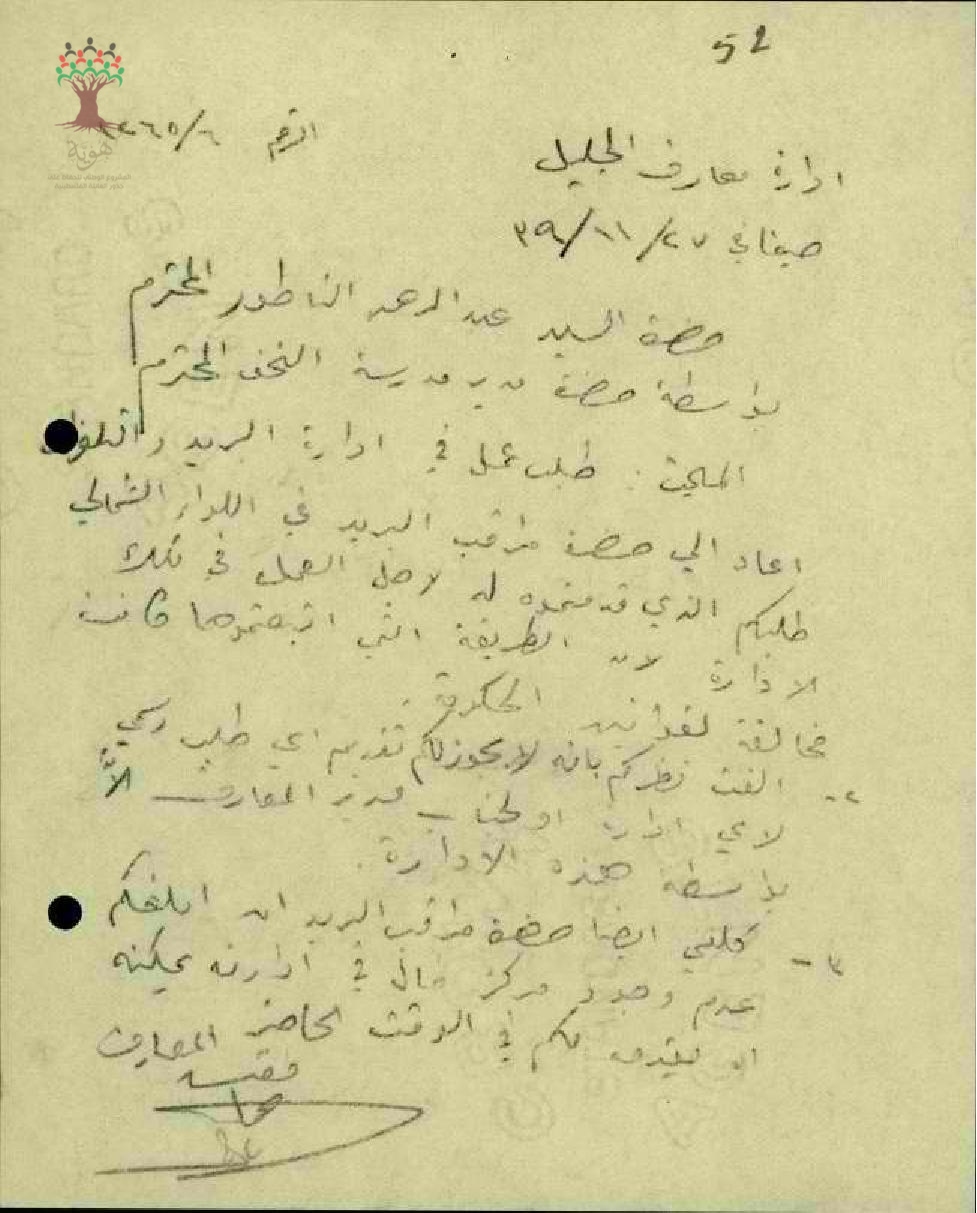 52
الرقم ١٢٦٥/٦
ادارة معارف الجليل
حيفا في ٢٧/١١/٣٩
حضرة السيد عبد الرحمن الناطور المحترم
بواسطة حضرة مدير مدرسة المحترم
المبحث : طلب عمل في ادارة البريد والتلغراف
اعاد الي حضرة مراقب البريد في اللواء الشمالي
طلبكم الذي قدمتموه له لاجل العمل في تلك
الادارة لان الطريقة التي اتبعتموها كانت
مخالفة لقوانين الحكومة .
٢- الفت نظركم بانه لا يجوز لكم تقديم اي طلب رسمي
لاي ادارة او لجناب مدير المعارف الاّ
بواسطة هذه الادارة .
٣- كلفني ايضا حضرة مراقب البريد ان ابلغكم
عدم وجود مركز خال في ادارته يمكنه
ان يقدمه لكم في الوقت الحاضر
مفتش المعارف
هوية